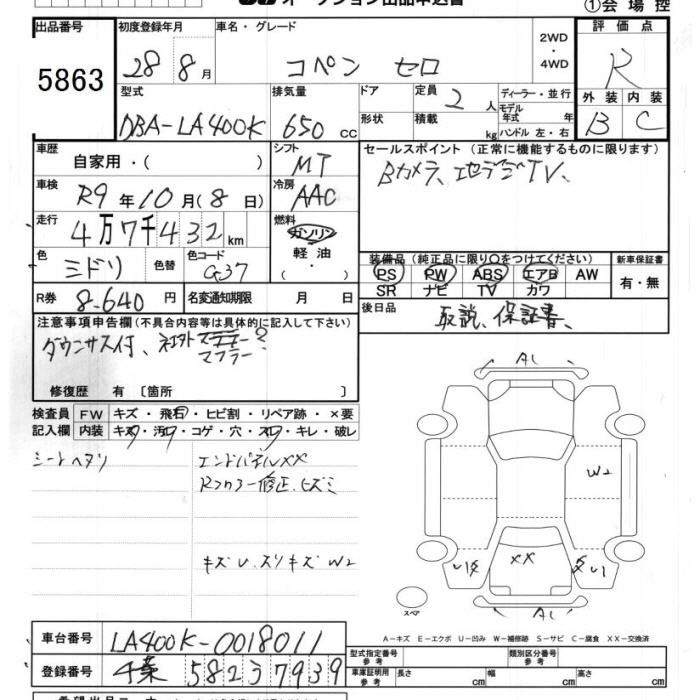 オークション出品申込書
①会場控
出品番号 5863
初度登録年月 28年8月
車名・グレード コペン セロ
2WD・4WD
評価点 R
外装 B 内装 C
型式 DBA-LA400K
排気量 650cc
ドア 形状
定員 2人
積載 kg
ディーラー・並行
モデル年式 年
ハンドル 左・右
車歴 自家用・( )
シフト MT
セールスポイント (正常に機能するものに限ります)
Bカメラ、地デジTV、
車検 R9年10月(8日)
冷房 AAC
走行 4万7千432km
燃料 ガソリン・軽油・( )
色 ミドリ 色替 色コード G37
装備品 (純正品に限り○をつけてください)
新車保証書
PS PW ABS エアB AW
SR ナビ TV カワ
有・無
R券 8-640円
名変通知期限 月 日
後日品 取説、保証書、
注意事項申告欄 (不具合内容等は具体的に記入して下さい)
ダウンサス付、社外
マフラー
修復歴 有 〔箇所 〕
検査員記入欄
FW キズ・飛石・ヒビ割・リペア跡・×要
内装 キズ・汚れ・コゲ・穴・スレ・キレ・破レ
シートヘタリ
エンドパネルXX
Rフロアー修正、ヒズミ
キズU.スリキズW2
AC
W2
XX
AC
スペア
A-キズ E-エクボ U-凹み W-補修跡 S-サビ C-腐食 XX-交換済
車台番号 LA400K-0018011
登録番号 千葉 582 3 7939
型式指定番号 参考
類別区分番号 参考
車庫証明用 参考 長さ cm 幅 cm 高さ cm